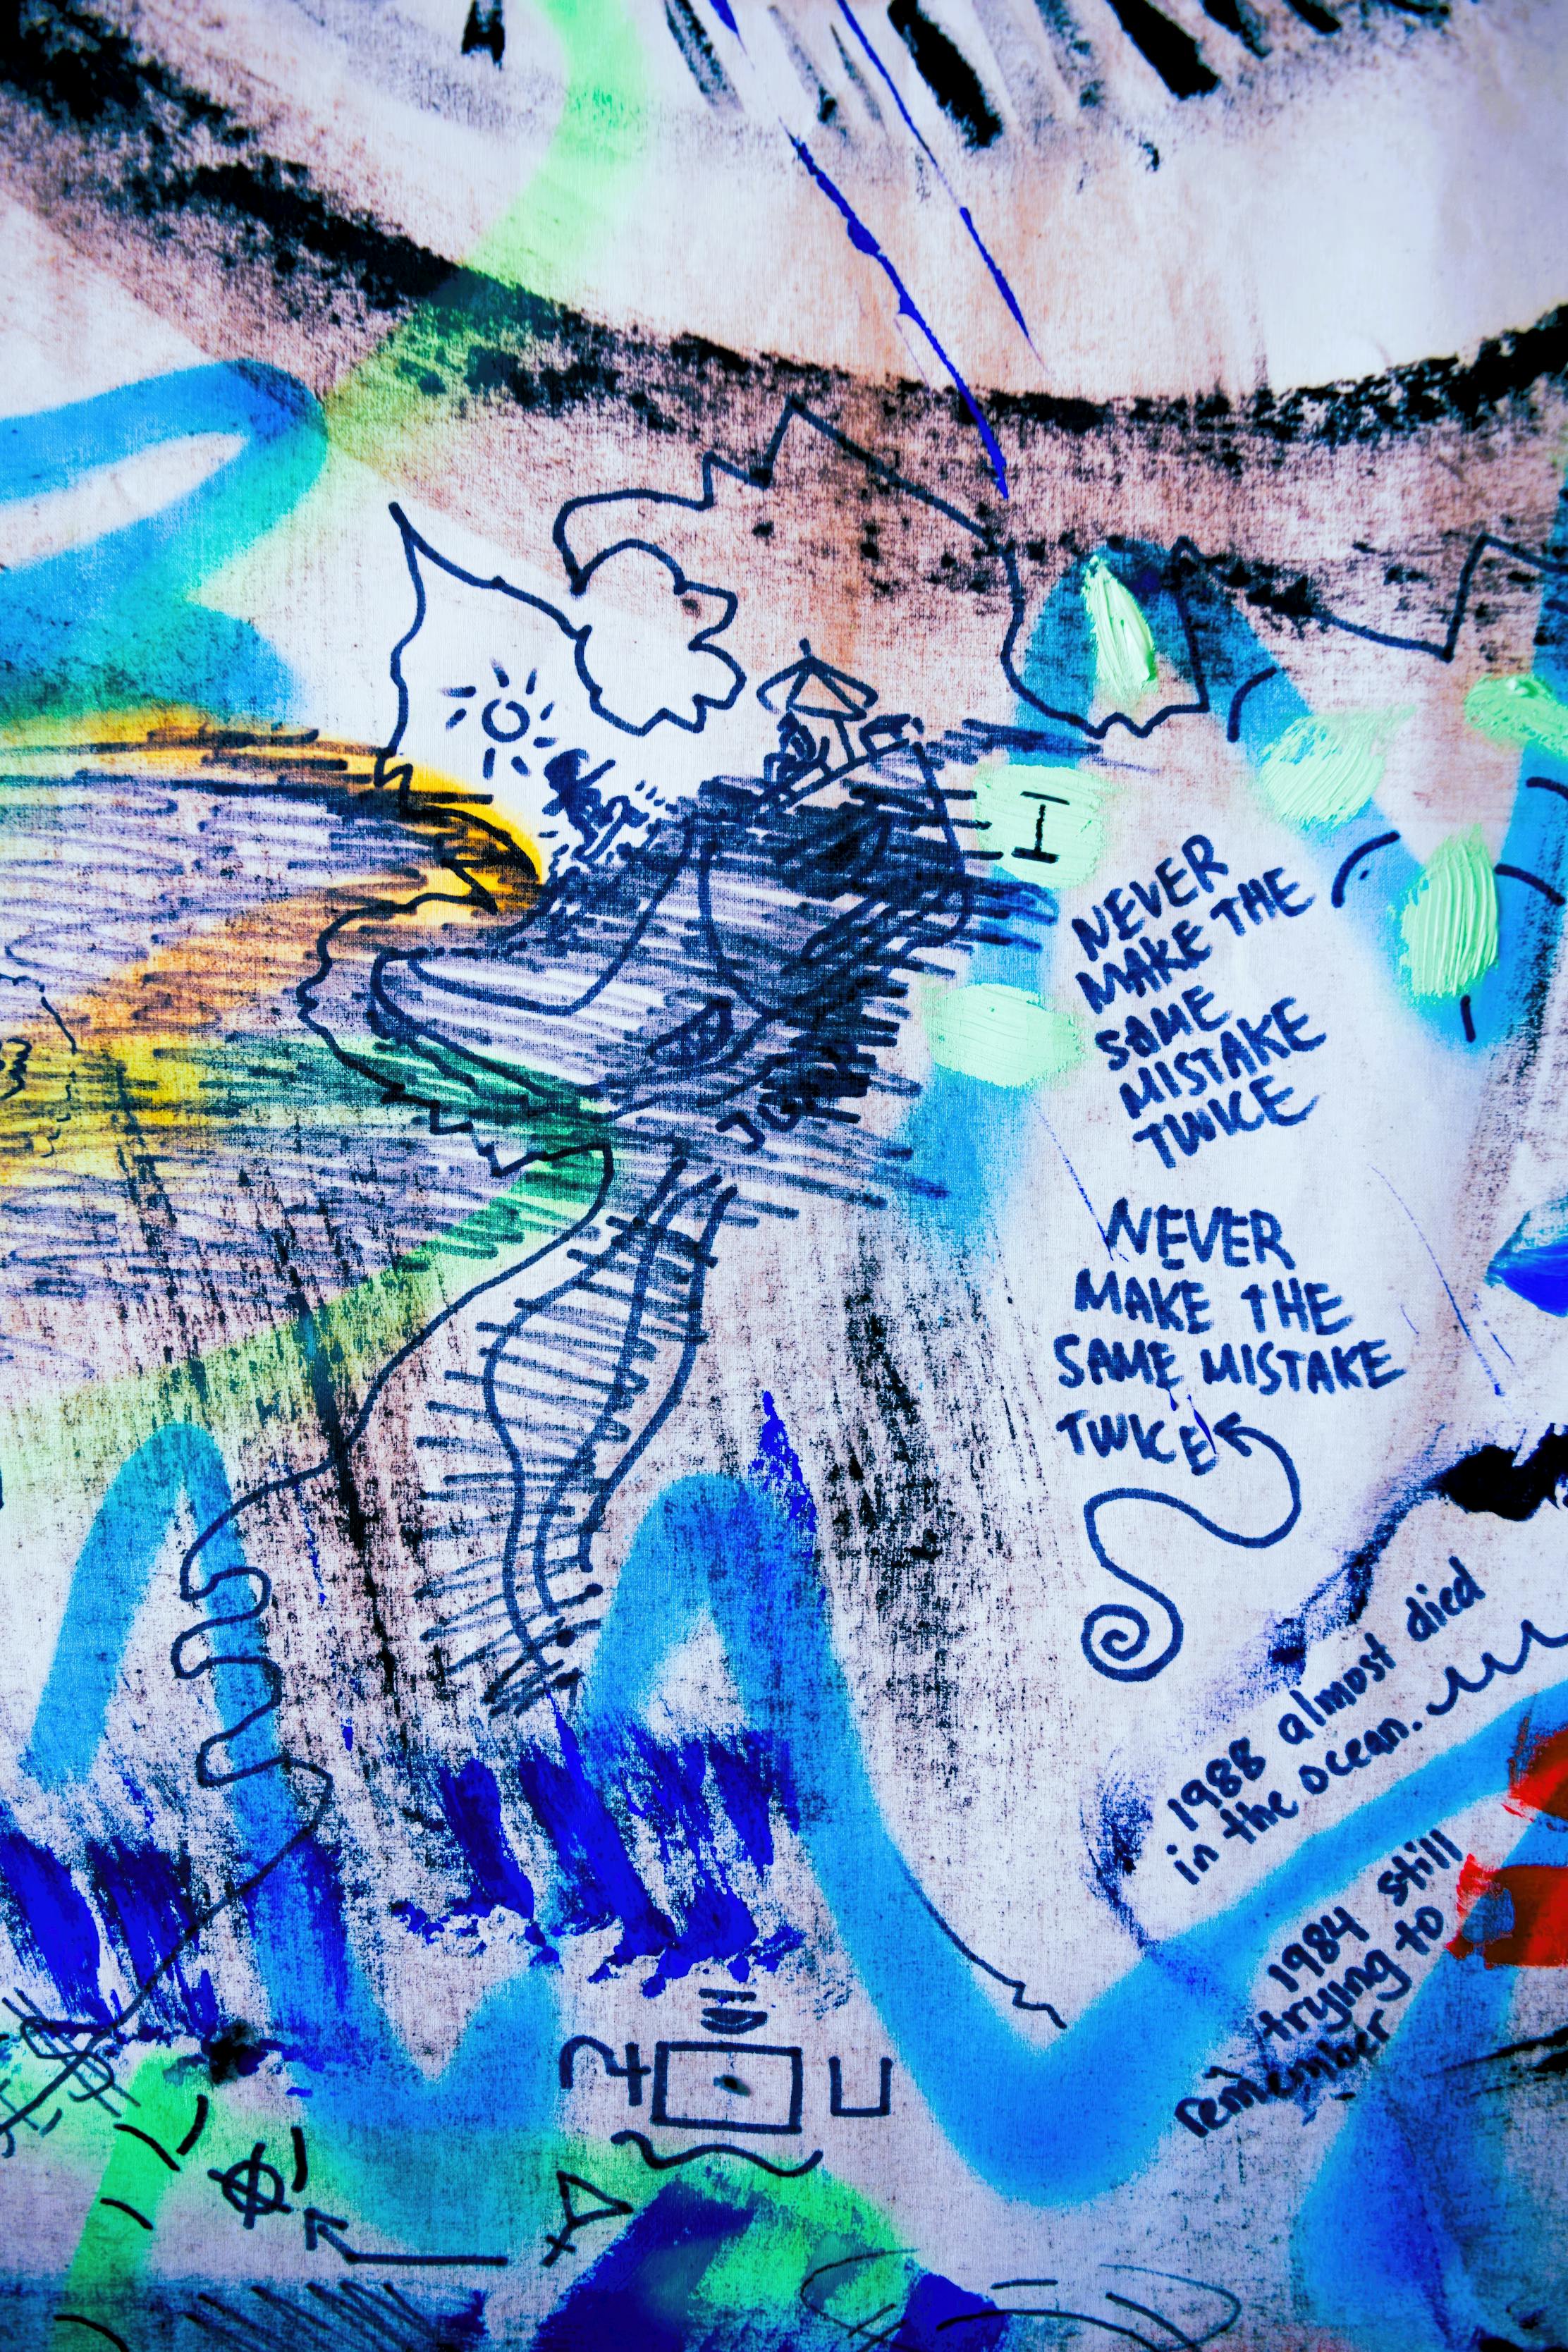 I
NEVER
MAKE THE
SAME
MISTAKE
TWICE
NEVER
MAKE THE
SAME MISTAKE
TWICE
1988 almost died
in the ocean.
1984 still
trying to
remember